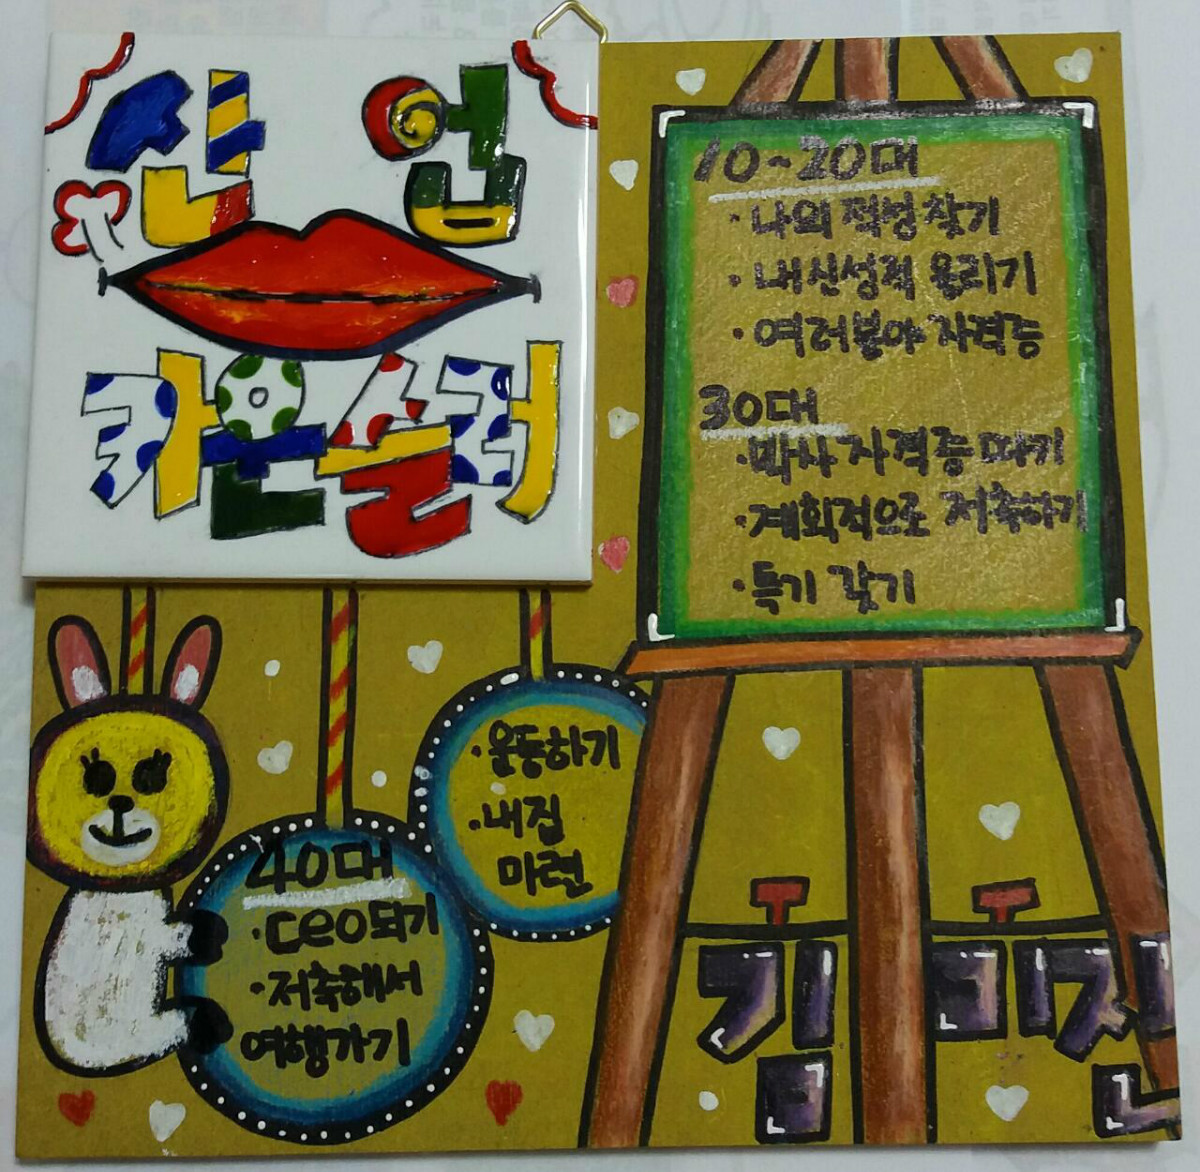 산업
카운슬러
10~20대
· 나의 적성찾기
· 내신성적 올리기
· 여러분야 자격증
30대
· 박사 자격증 따기
· 계획적으로 저축하기
· 특기 갖기
· 운동하기
· 내집
마련
40대
· ceo되기
· 저축해서
여행가기
김미진